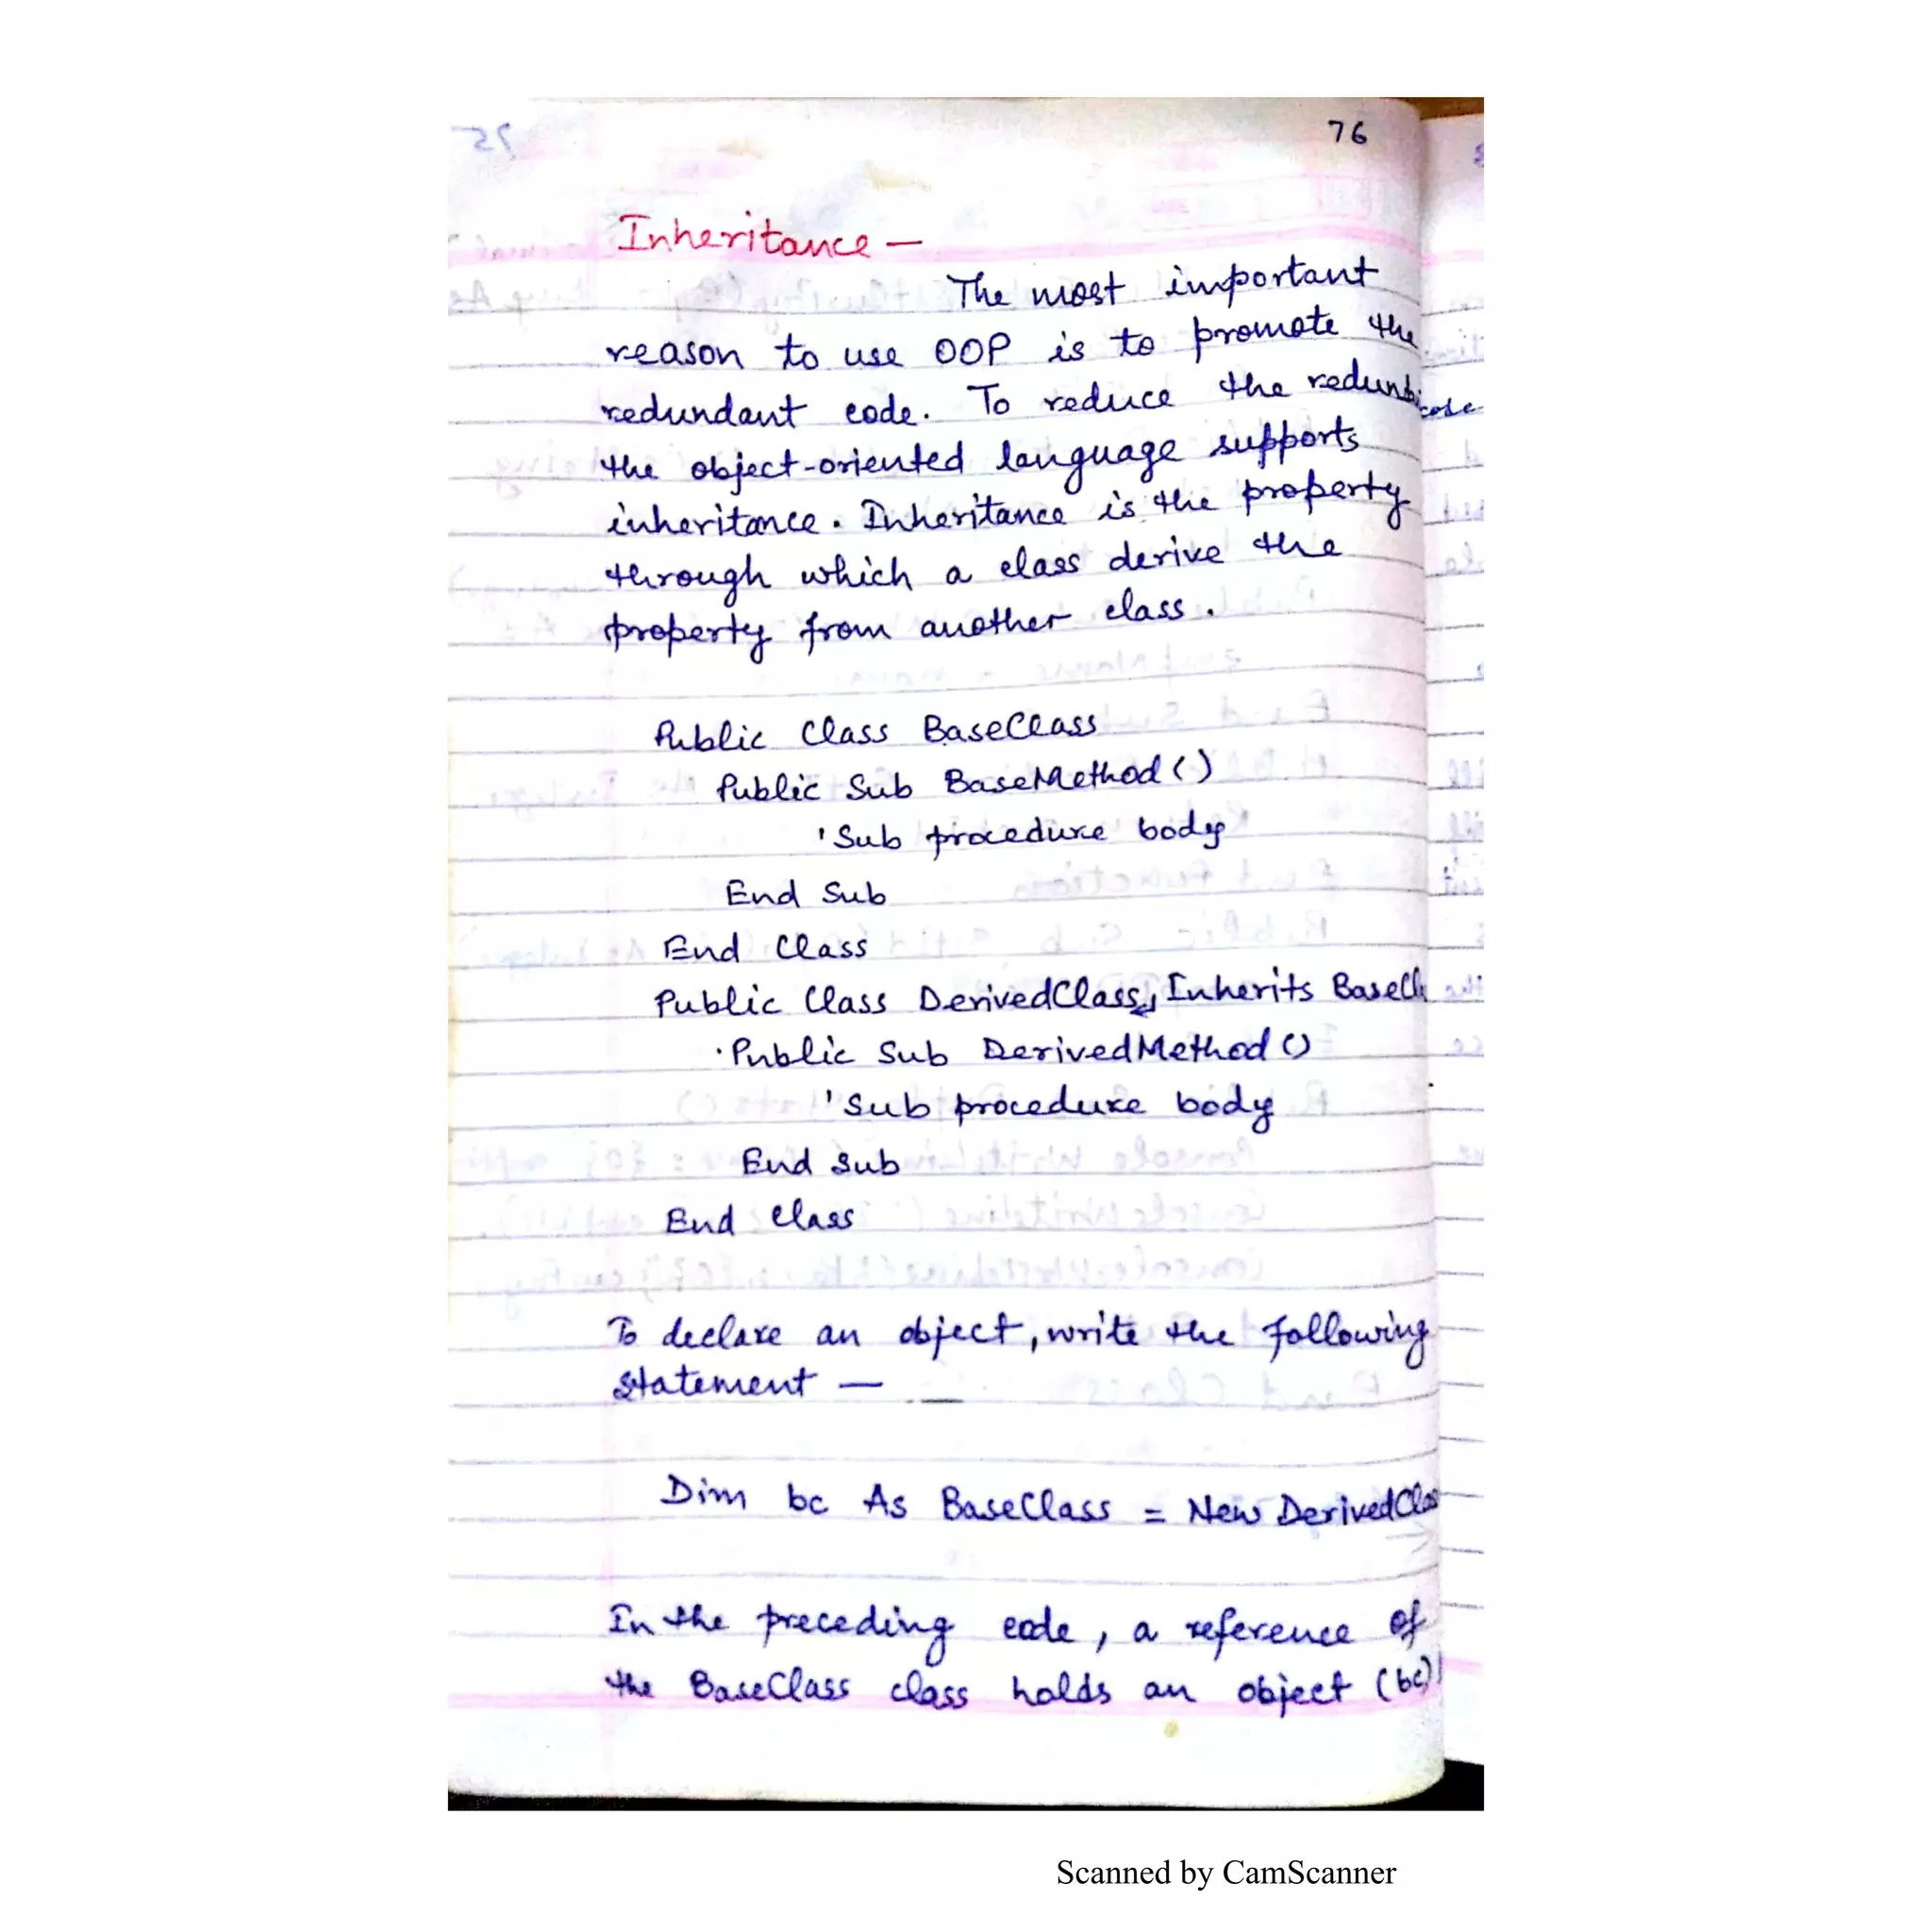 76
Inheritance —
The most important
reason to use OOP is to promote the
redundant code. To reduce the redund code
the object-oriented language supports
inheritance. Inheritance is the property
through which a class derive the
property from another class.
Public Class BaseClass
Public Sub BaseMethod()
'Sub procedure body
End Sub
End Class
Public Class DerivedClass, Inherits BaseCl
Public Sub DerivedMethod()
'Sub procedure body
End Sub
End Class
To declare an object, write the following
statement —
Dim bc As BaseClass = New DerivedClas
In the preceding code, a reference of
the BaseClass class holds an object (bc)
Scanned by CamScanner